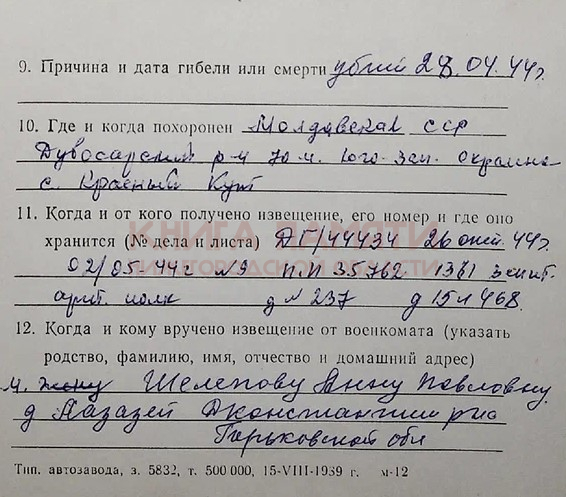 9. Причина и дата гибели или смерти убит 28.04.44г.
10. Где и когда похоронен Молдавская ССР
Дубосарский р-н 70 м. Юго-Зап. окраина
с. Красный Кут
11. Когда и от кого получено извещение, его номер и где оно
хранится (№ дела и листа) ДГ/44434 26 44г.
02/05.44г №9 п.п 35762 1361 зенит.
арт. полк д № 237 д 15 л 468.
КНИГА ПАМЯТИ
НИЖЕГОРОДСКОЙ ОБЛАСТИ
12. Когда и кому вручено извещение от военкомата (указать
родство, фамилию, имя, отчество и домашний адрес)
м. жену Шелепову Анну Павловну
д Дконстантин р-на
Горьковской обл
Тип. автозавода, з. 5832, т. 500 000, 15-VIII-1989 г. м-12